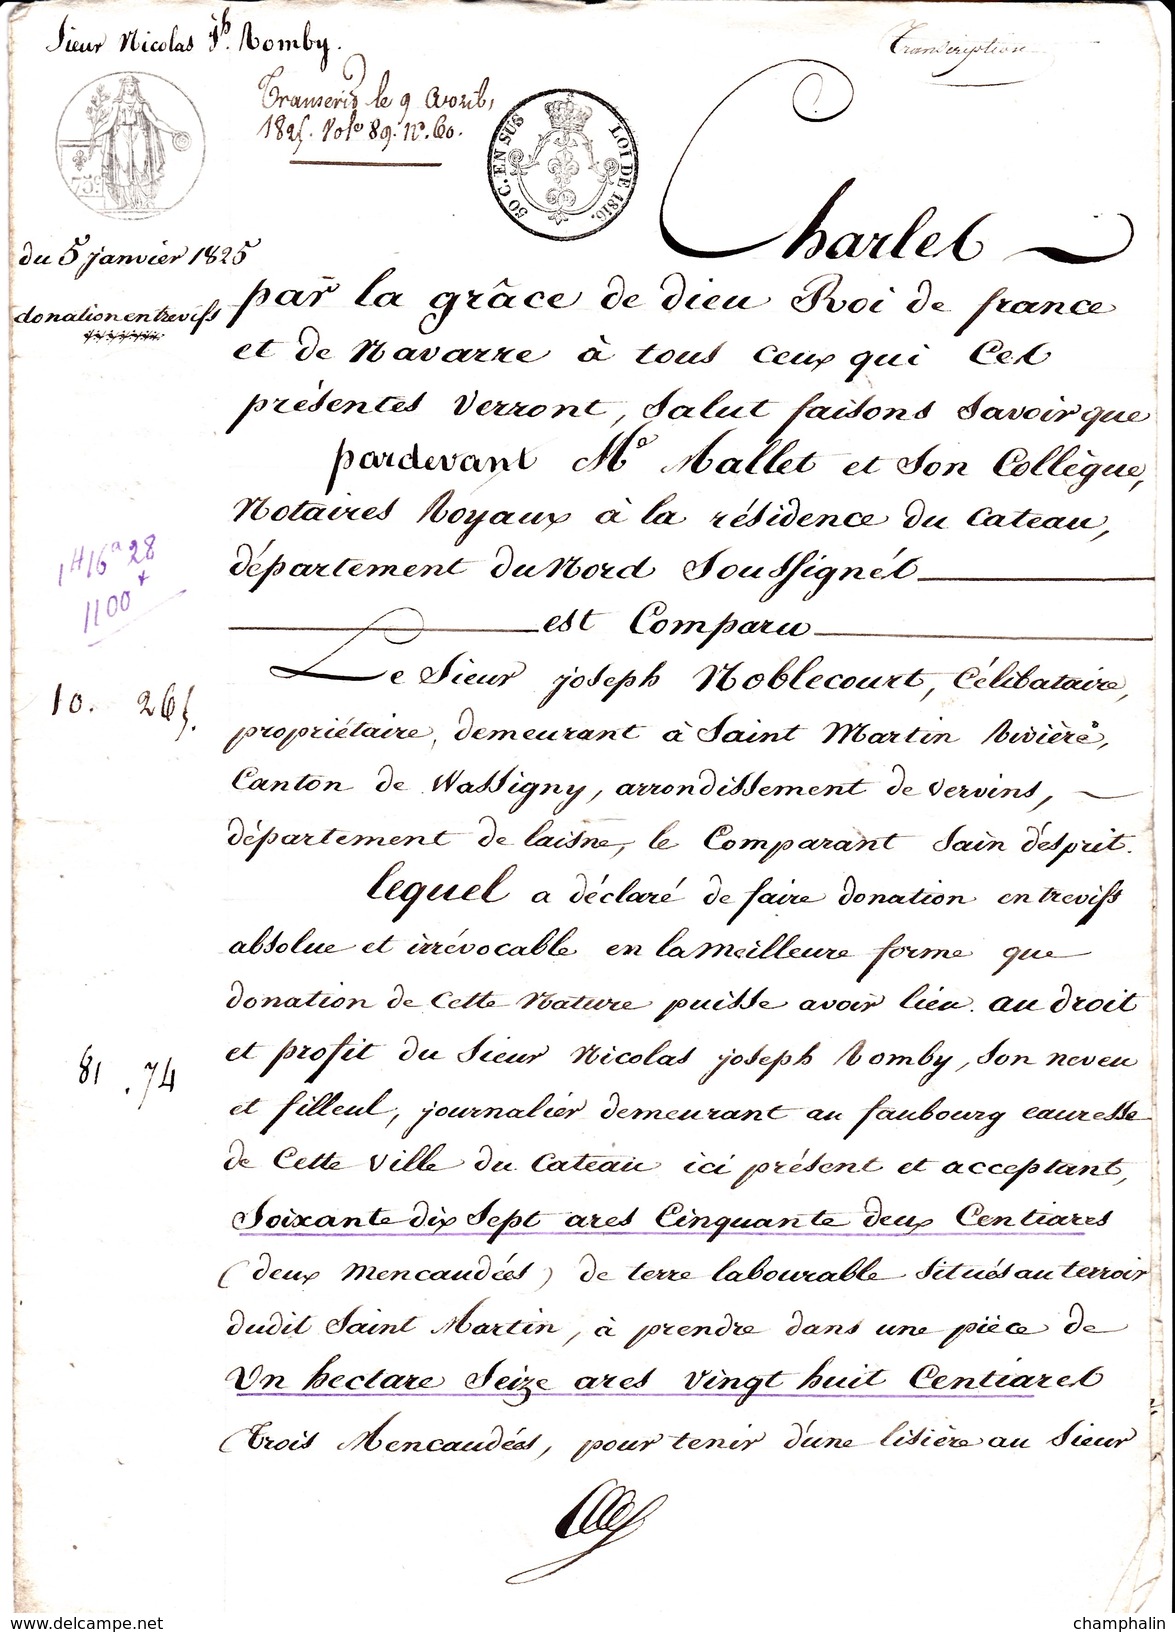 Sieur Nicolas Jh. Romby.
Transcription
Transcrit le 9 Avril,
1825. Vole 89. No. 60.
75 c.
50 C. EN SUS
LOI DE 1816.
du 5 janvier 1825
donation entrevifs
Charles
par la grâce de dieu Roi de france
et de Navarre à tous ceux qui Ces
présentes Verront, Salut faisons Savoir que
pardevant Me Mallet et Son Collègue,
Notaires Royaux à la résidence du Cateau,
département du Nord Soussignés
1H 16a 28
1100
est Comparu
Le Sieur joseph Noblecourt, Célibataire,
10. 265.
propriétaire, demeurant à Saint Martin Rivière,
Canton de Wassigny, arrondissement de Vervins,
département de laisne, le Comparant Sain d'esprit.
lequel a déclaré de faire donation entrevifs
absolue et irrévocable en la Meilleure forme que
donation de Cette Nature puisse avoir lieu. au droit
et profit du Sieur Nicolas joseph Romby, Son neveu
81 . 74
et filleul, journalier demeurant au faubourg
de Cette Ville du Cateau ici présent et acceptant,
Soixante dix Sept ares Cinquante deux Centiares
(deux Mencaudées) de terre labourable Situés au terroir
dudit Saint Martin, à prendre dans une pièce de
Un hectare Seize ares Vingt huit Centiares
(Trois Mencaudées, pour tenir d'une lisière au Sieur
www.delcampe.net
champhalin